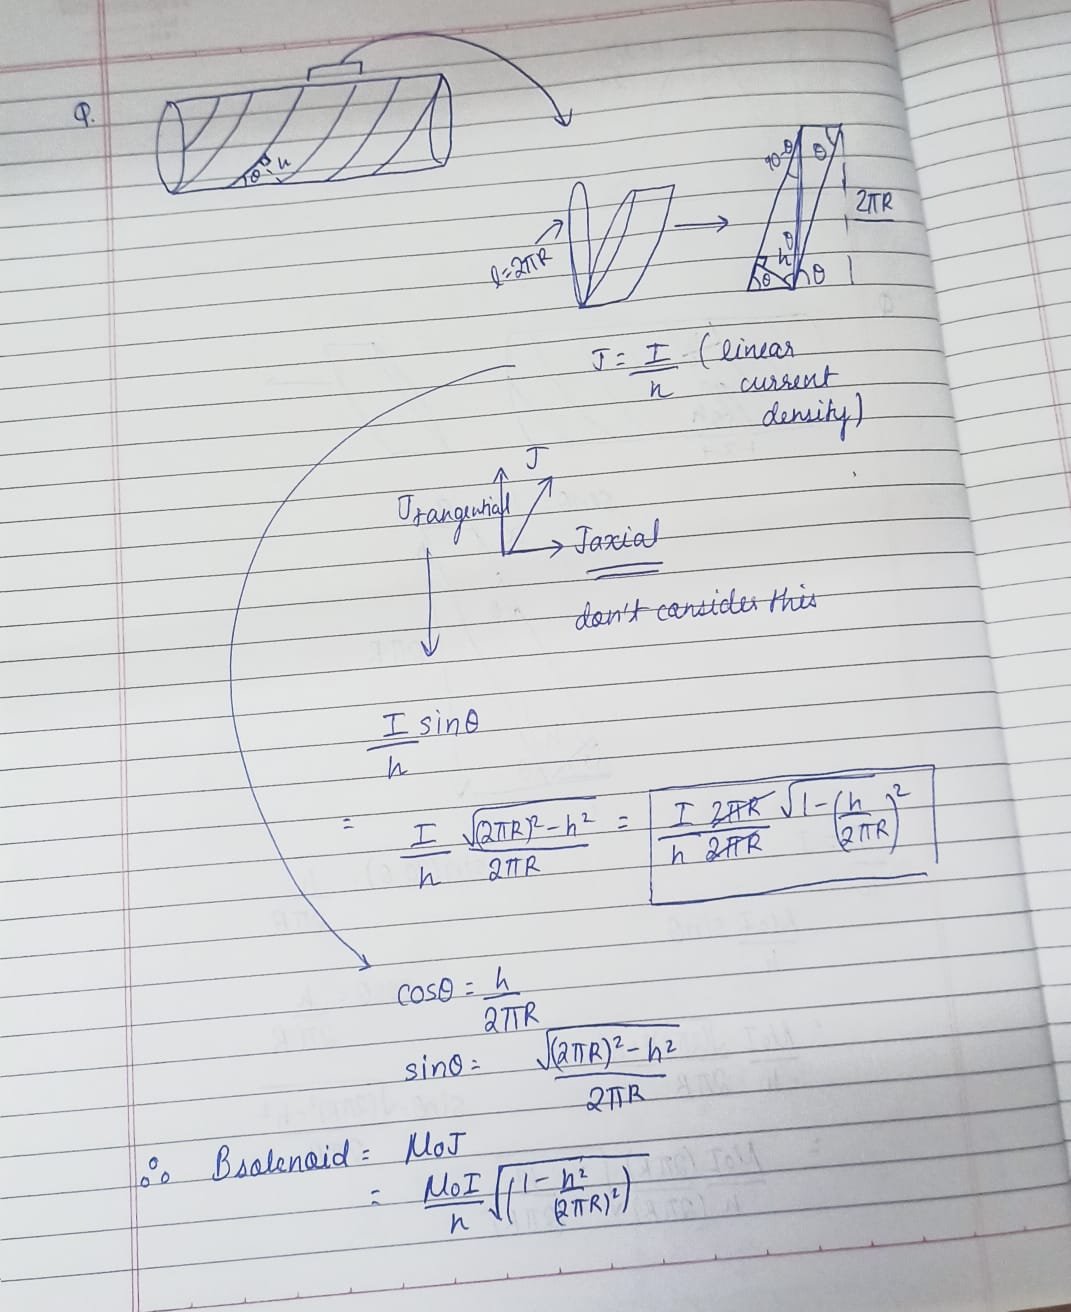 Q.
θ h
l=2πR
90-θ θ
2πR
θ
h
θ θ
J = I/h (linear
current
density)
J
Jtangential
Jaxial
don't consider this
I/h sinθ
= I/h √((2πR)²-h²)/2πR = I/h 2πR/2πR √1-(h/2πR)²
cosθ = h/2πR
sinθ = √((2πR)²-h²)/2πR
∴ Bsolenoid = μ₀J
= μ₀I/h √(1-h²/(2πR)²)